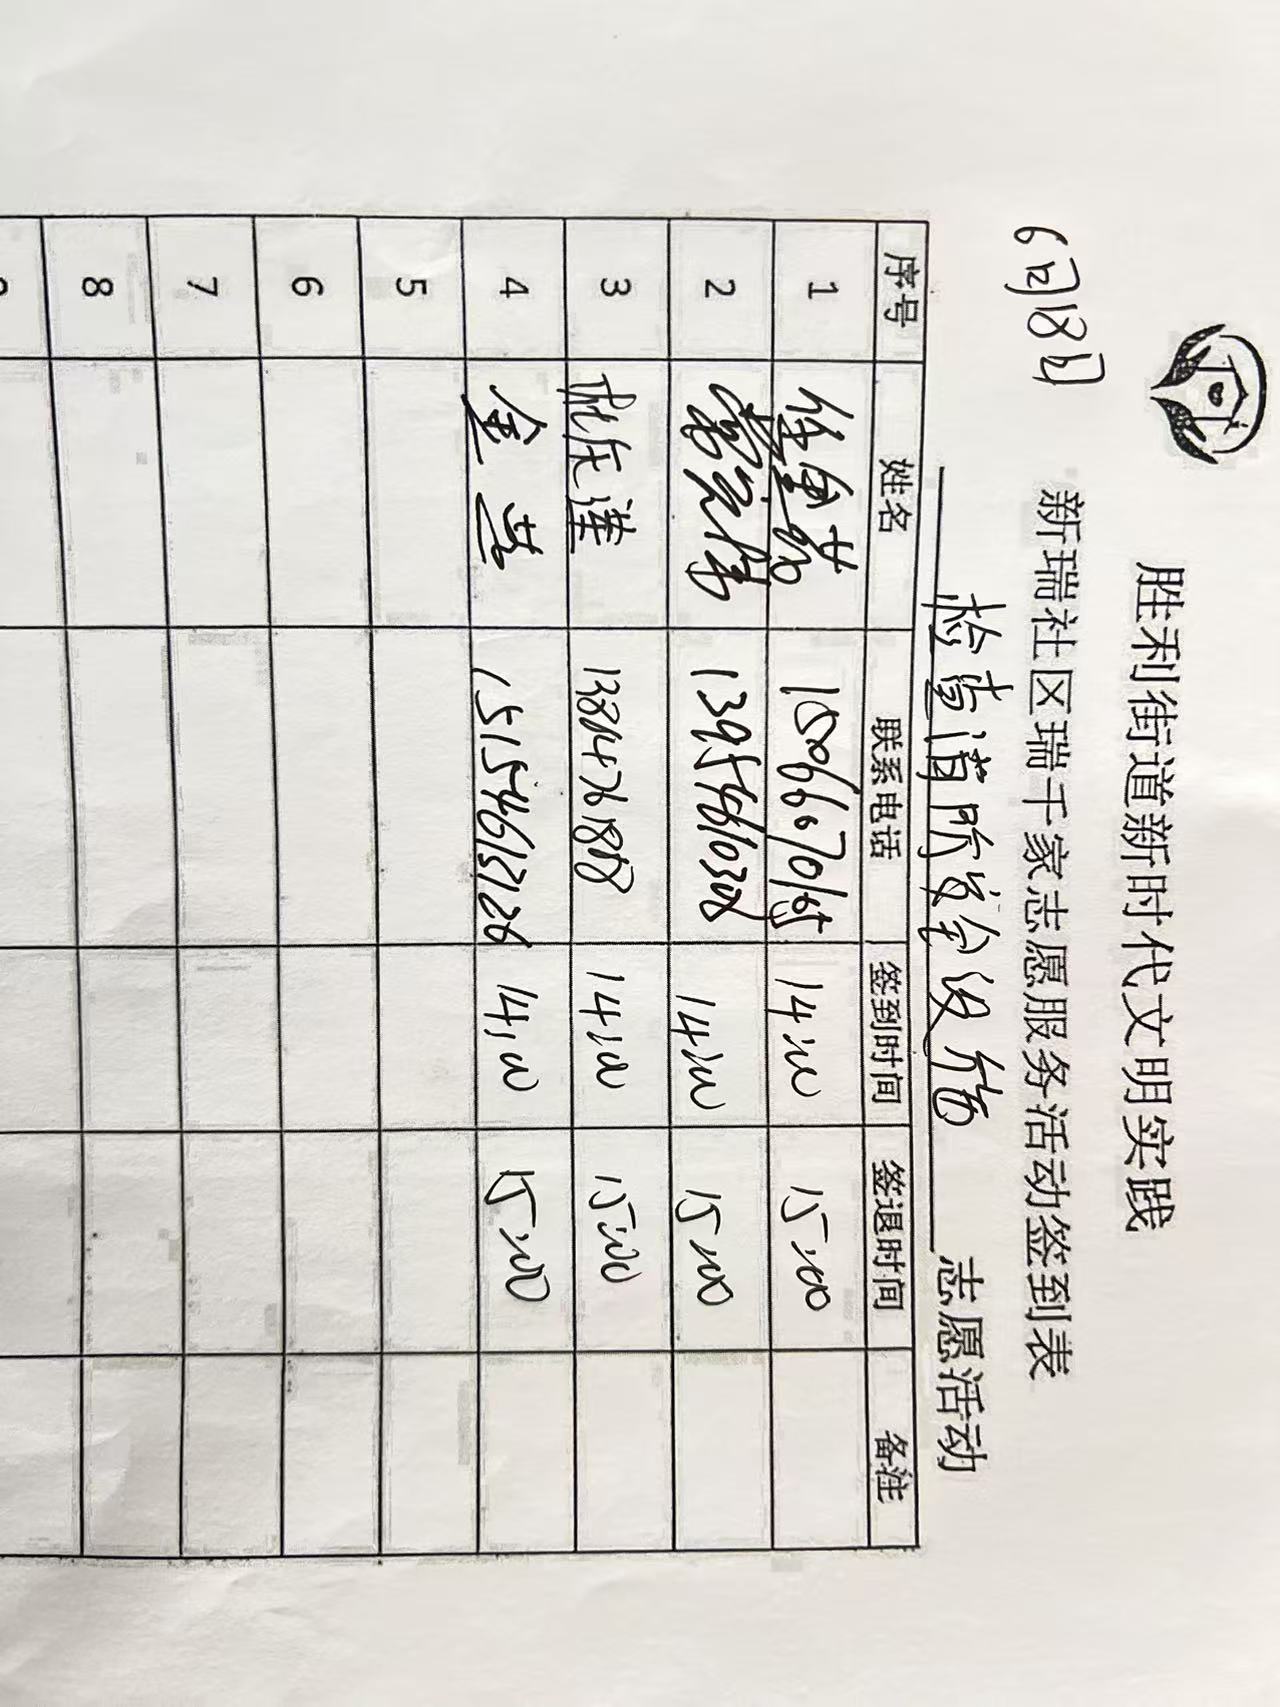 胜利街道新时代文明实践
新瑞社区瑞千家志愿服务活动签到表
6月18日 检查消防安全设施 志愿活动
序号 姓名 联系电话 签到时间 签退时间 备注
1 任金芬 14:00 15:00
2 13954610308 14:00 15:00
3 14:00 15:00
4 金燕 15154613126 14:00 15:00
5
6
7
8